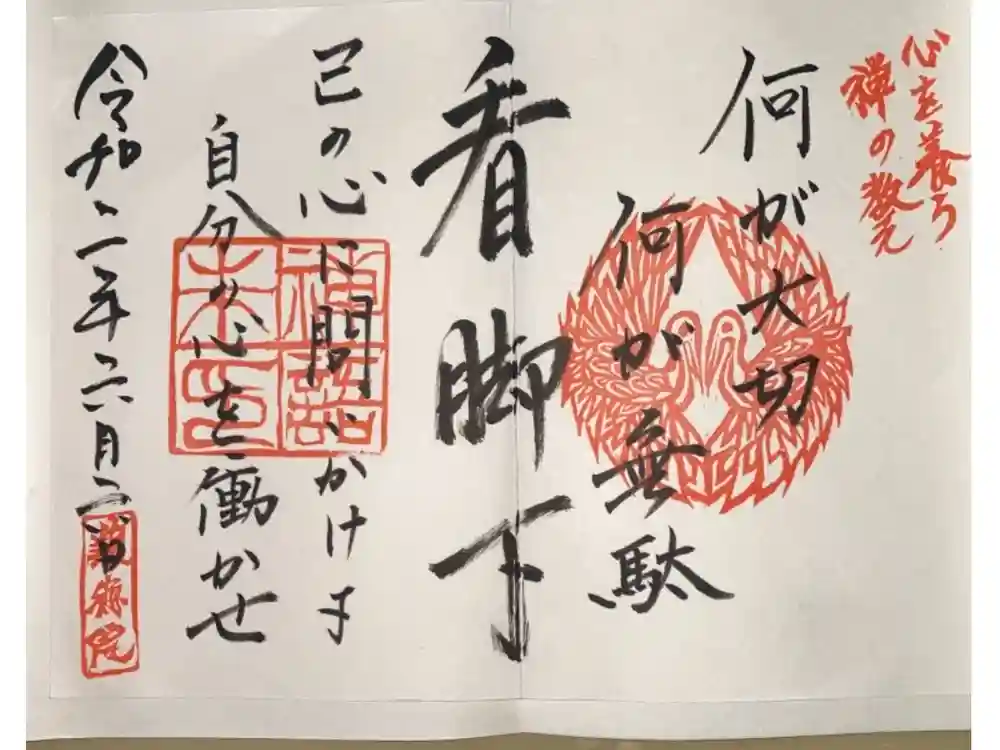 心を養う
禅の教え
何が大切
何が無駄
看脚下
己の心に問いかけ
自分の心を働かせ
令和二年六月
禅語
朱印